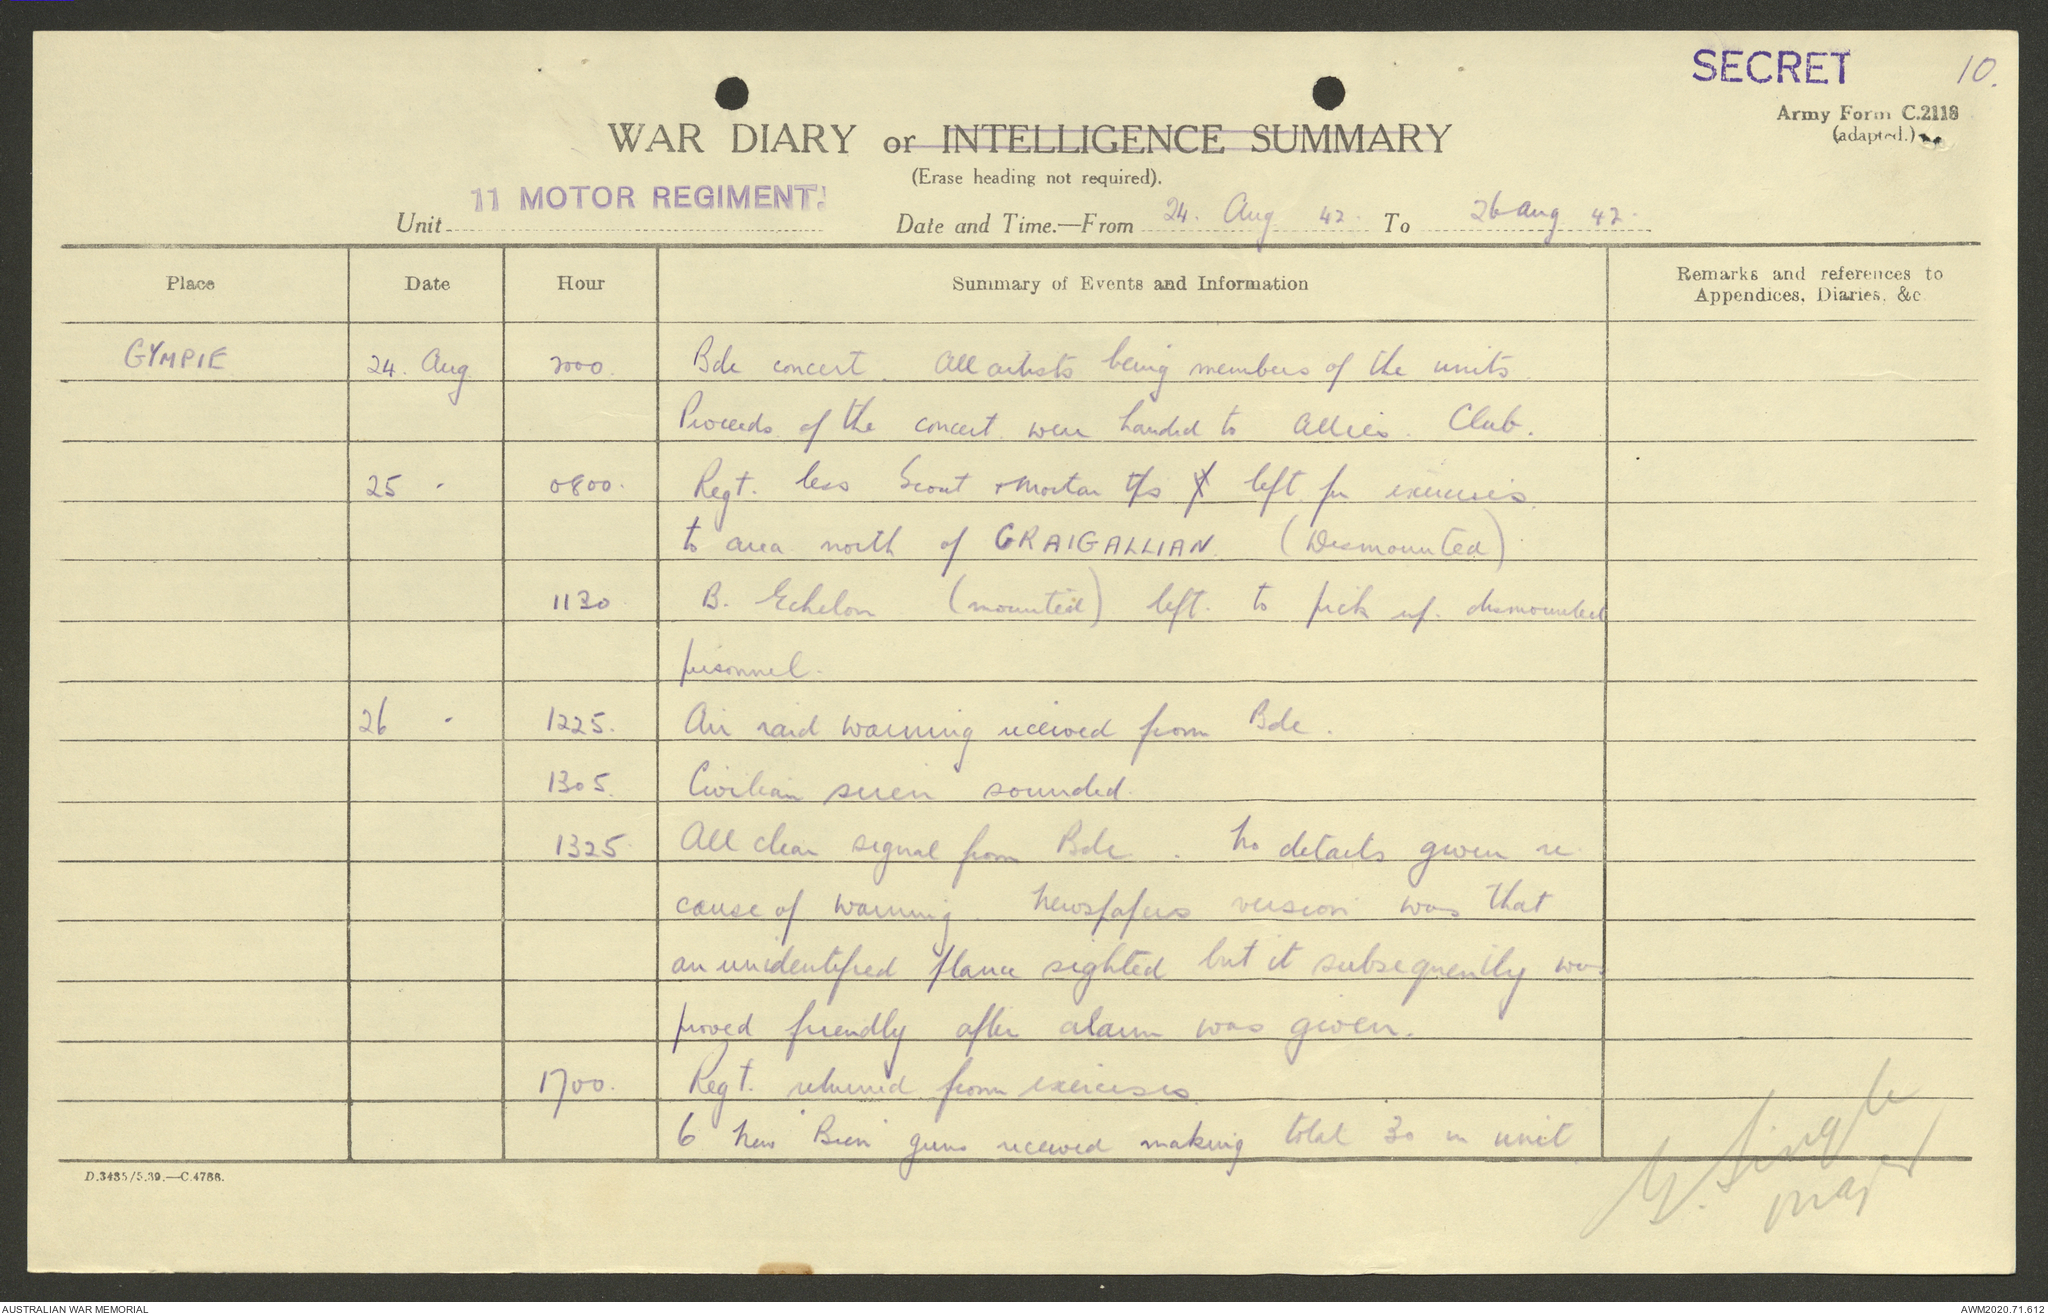 SECRET 10.
Army Form C.2118
(adapted.)
WAR DIARY or INTELLIGENCE SUMMARY
(Erase heading not required).
Unit 11 MOTOR REGIMENT. Date and Time.—From 24. Aug 42. To 26 Aug 42.
Place Date Hour Summary of Events and Information Remarks and references to
Appendices, Diaries, &c
GYMPIE 24. Aug 2000. Bde concert. All artists being members of the units
Proceeds of the concert were handed to Allies Club.
25 " 0800. Regt. less Scout & Mortar tps left for exercises
to area north of CRAIGALLIAN. (Dismounted)
1130 B. Echelon (mounted) left to pick up dismounted
personnel.
26 " 1225. Air raid warning received from Bde.
1305. Civilian siren sounded.
1325 All clear signal from Bde. No details given re
cause of warning. Newspapers version was that
an unidentified plane sighted but it subsequently was
proved friendly after alarm was given.
1700. Regt. returned from exercises
6 new 'Bren' guns received making total 30 in unit
Major
D.3485/5.39.—C.4788.
AUSTRALIAN WAR MEMORIAL AWM2020.71.612